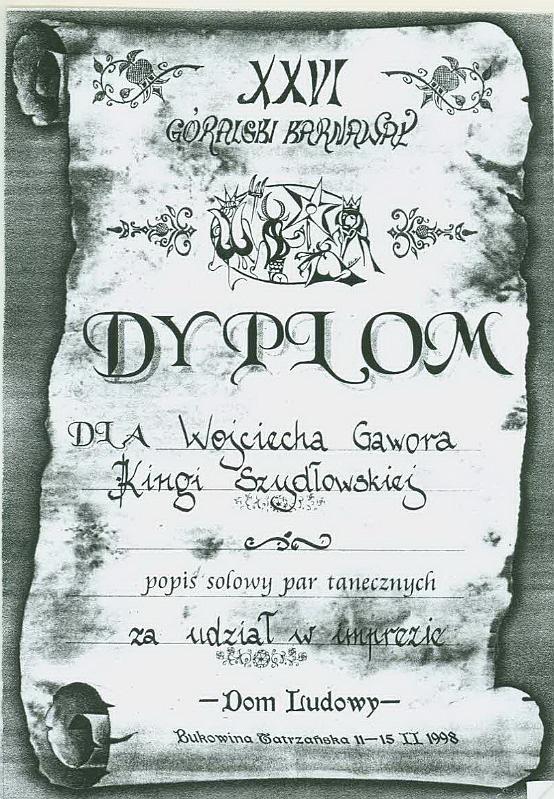 XXVI
GÓRALSKI KARNAWAŁ
DYPLOM
DLA Wojciecha Gawora
Kingi Szydłowskiej
popis solowy par tanecznych
za udział w imprezie
—Dom Ludowy—
Bukowina Tatrzańska 11—15 II 1998